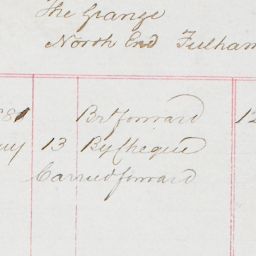 The Grange
North End Fulham
81 Brt forward 12
13 By Cheque
Carried forward